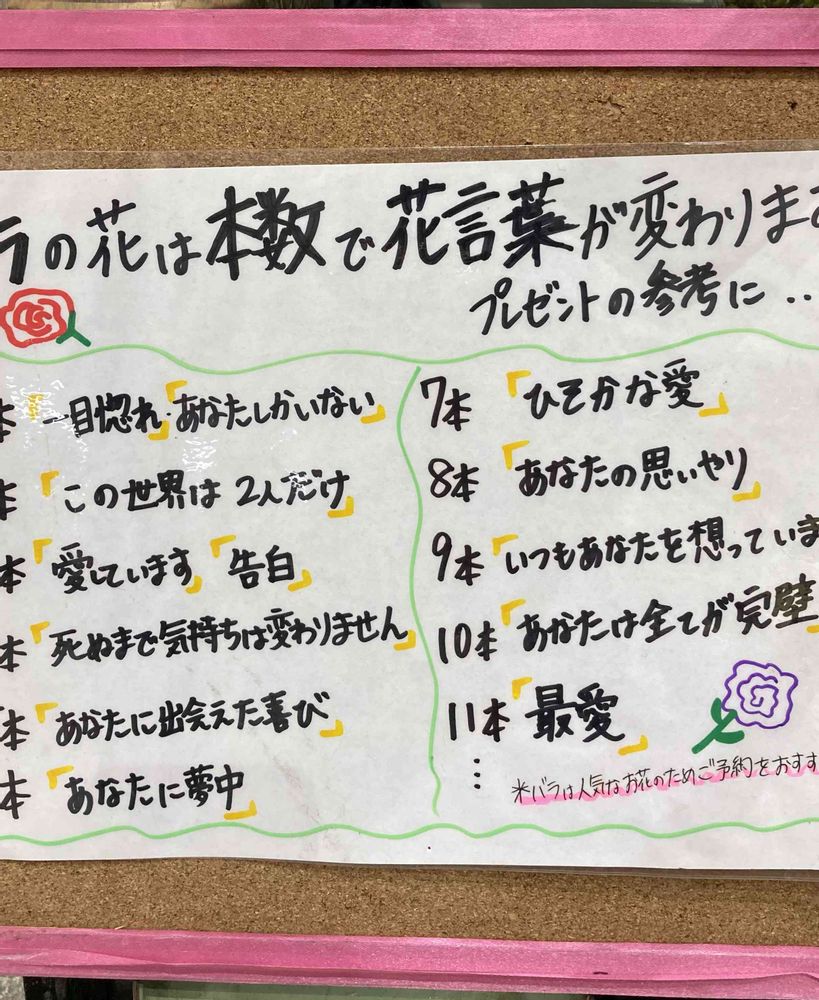 ラの花は本数で花言葉が変わります
プレゼントの参考に‥
本 「一目惚れ」「あなたしかいない」
本 「この世界は2人だけ」
本 「愛しています」「告白」
本 「死ぬまで気持ちは変わりません」
本 「あなたに出会えた喜び」
本 「あなたに夢中」
7本 「ひそかな愛」
8本 「あなたの思いやり」
9本 「いつもあなたを想っていま
10本 「あなたは全てが完璧」
11本 「最愛」
⋮
※バラは人気なお花のためご予約をおすす